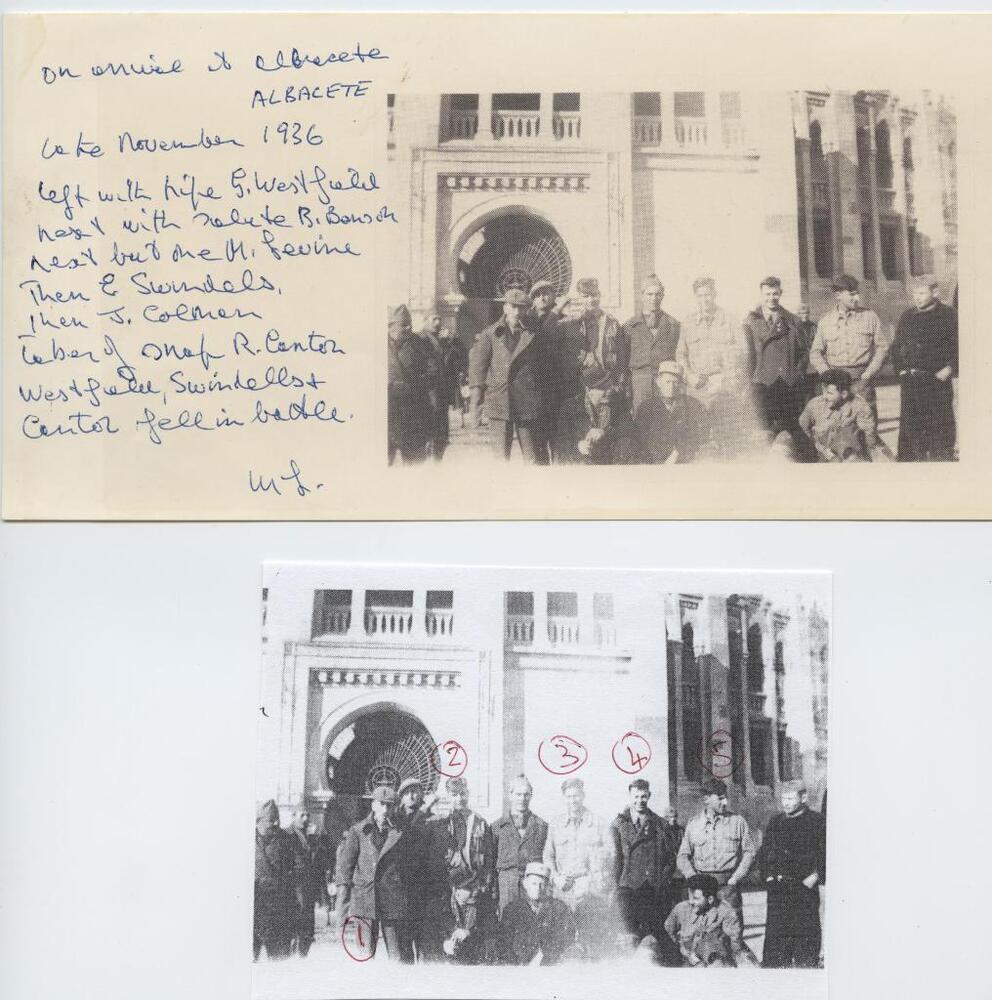 On arrival at Albacete
ALBACETE
late November 1936
left with pipe G. Westfield
next with salute B. Bonson
next but one M. Levine
Then E Swindels,
Then J. Colman
Taker of snap R. Cantor
Westfield, Swindells &
Cantor fell in battle.
M L.
2
3
4
5
1